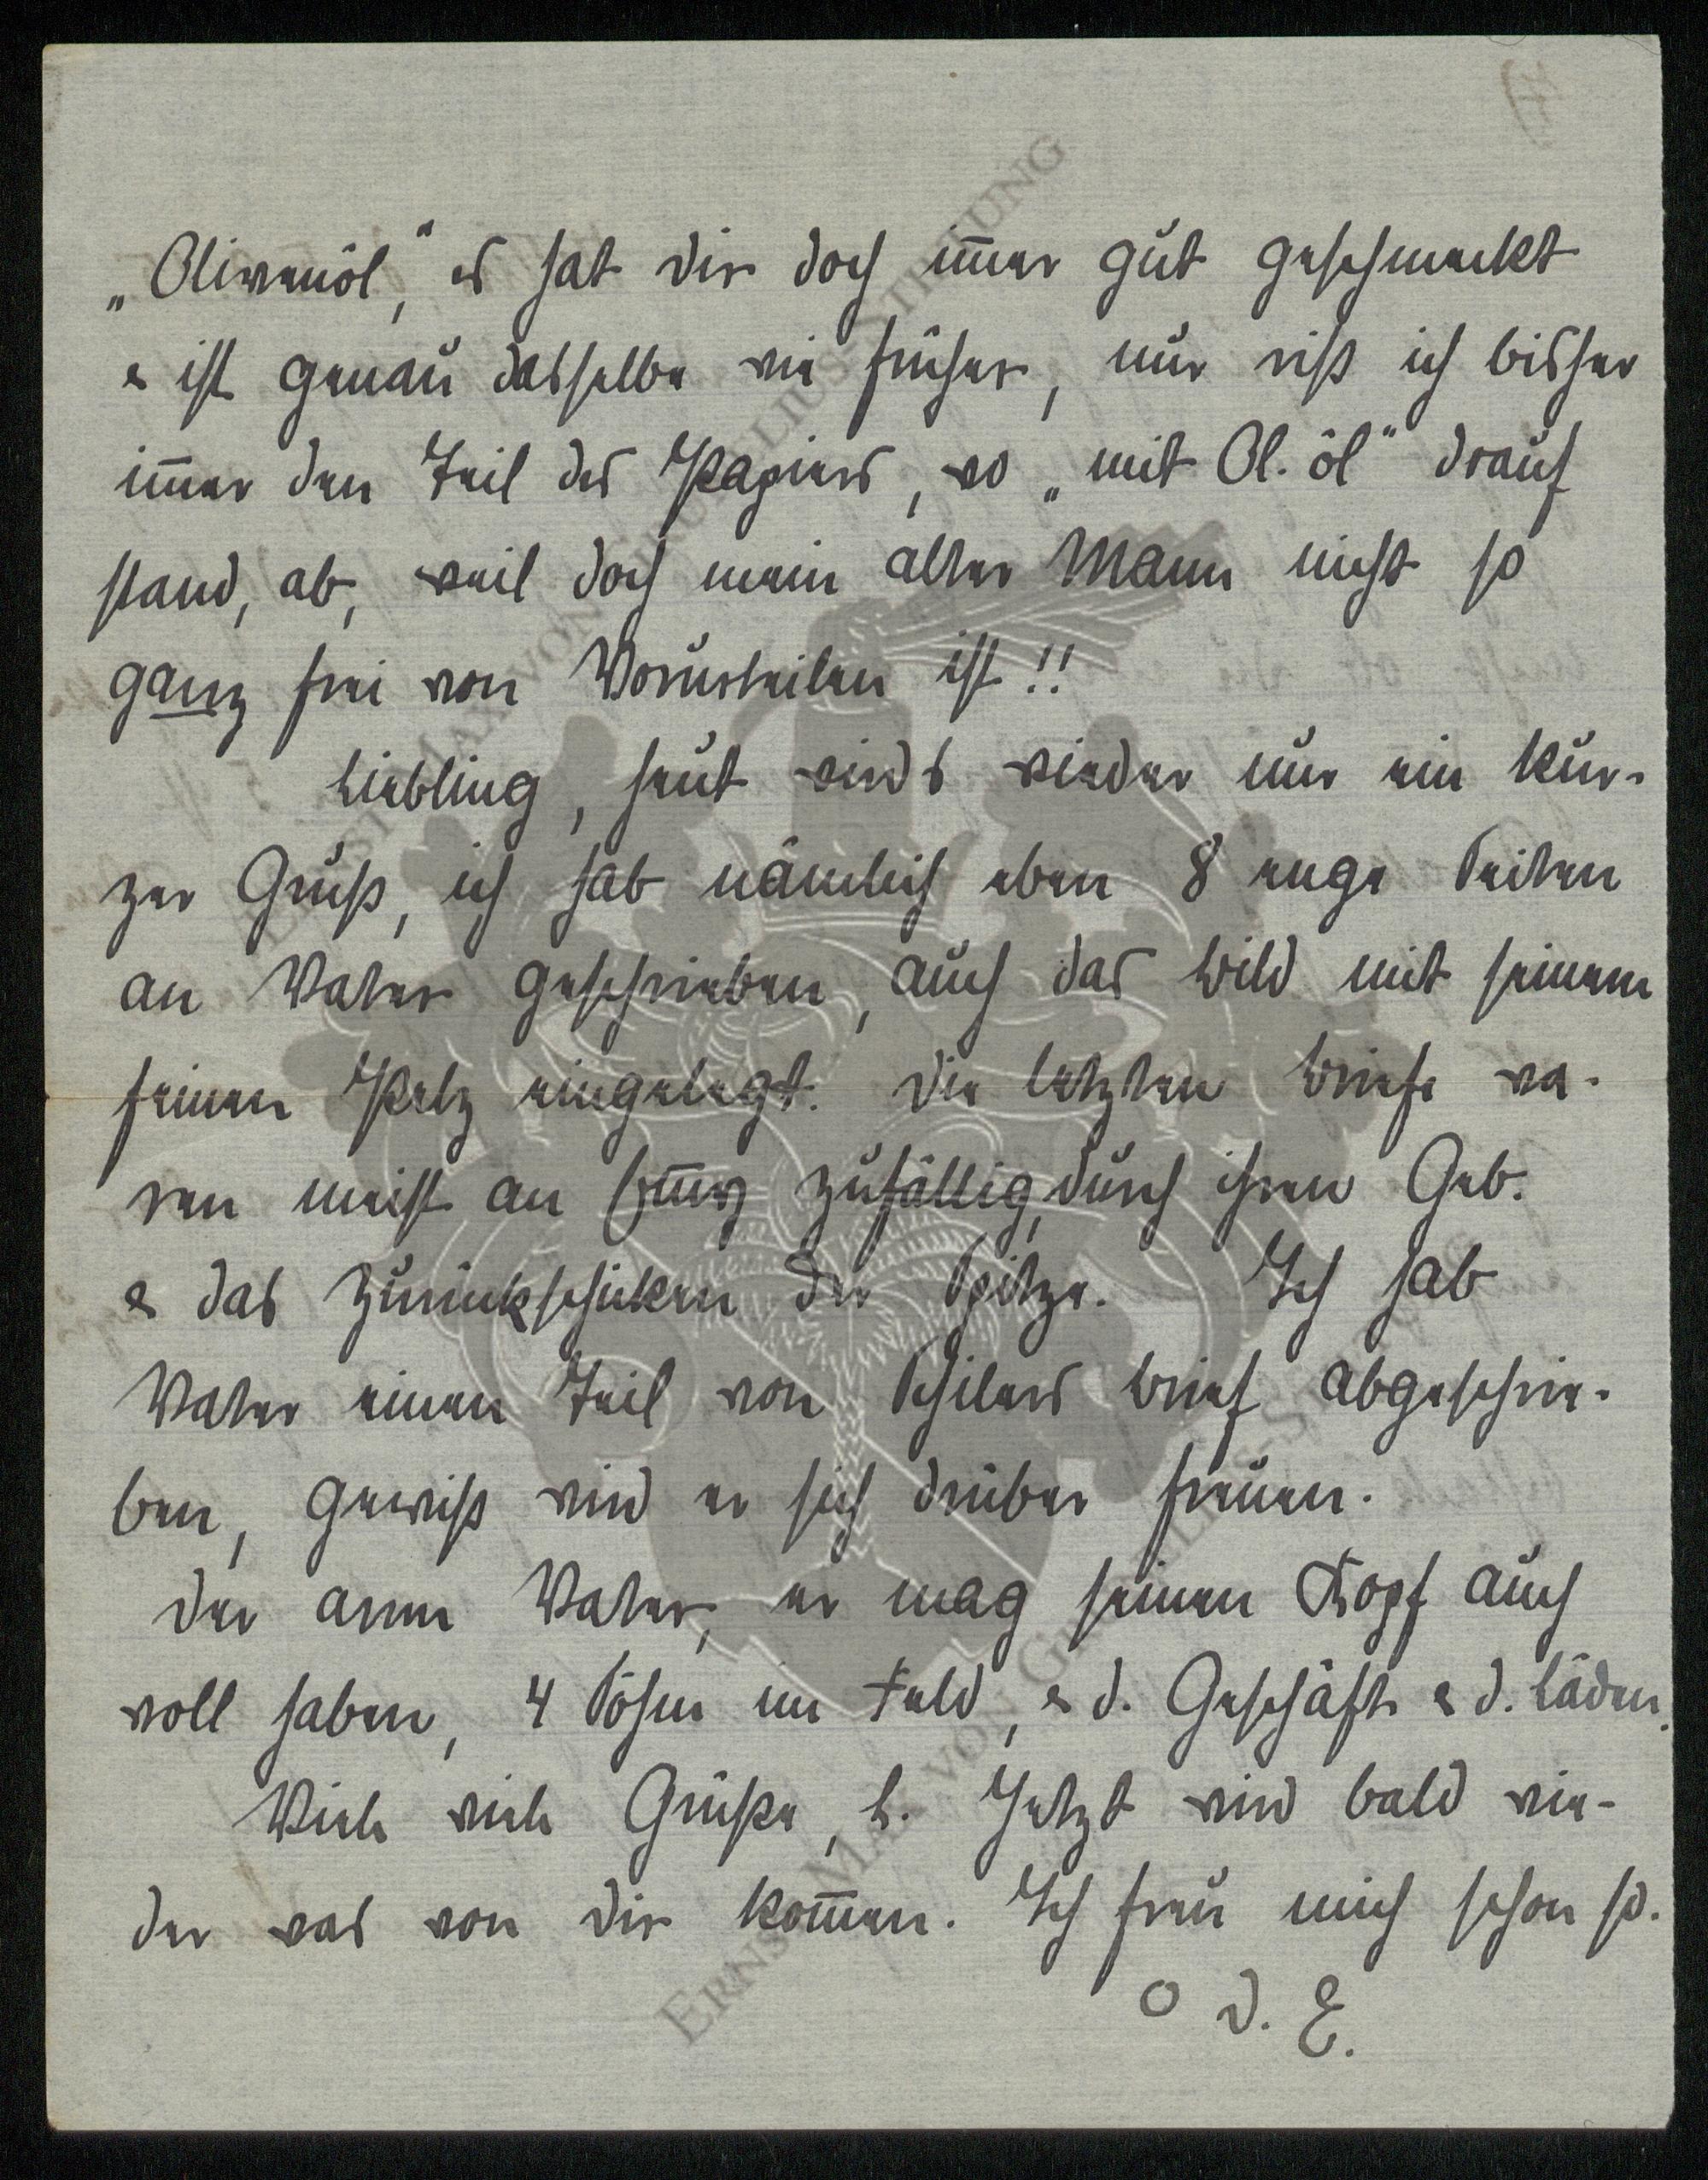 „Olivenöl," es hat dir doch im̅er gut geschmeckt
& ist genau dasselbe wie früher, nur riß ich bisher
im̅er den Teil des Papiers, wo „mit Ol. öl" drauf
stand, ab, weil doch mein alter Mann nicht so
ganz frei von Vorurteilen ist!!
Liebling, heut wirds wieder nur ein kur-
zer Gruß, ich hab nämlich eben 8 enge Seiten
an Vater geschrieben, auch das Bild mit seinem
feinen Pelz eingelegt. Die letzten Briefe wa-
ren meist an zufällig, durch ihren Geb.
& das Zurückschicken der Spitze. Ich hab
Vater einen Teil von Schilers Brief abgeschrie-
ben, gewiß wird er sich drüber freuen.
Der arme Vater, er mag seinen Kopf auch
voll haben, 4 Söhne im Feld, & d. Geschäft & d. Läden.
Viele viele Grüße, L. Jetzt wird bald wie-
der was von dir kom̅en. Ich freu mich schon so.
O D. E.
ERNST MAX VON GRUNELIUS-STIFTUNG
ERNST MAX VON GRUNELIUS-STIFTUNG